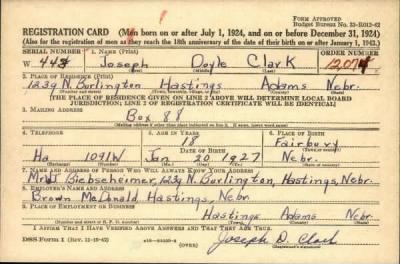 FORM APPROVED
Budget Bureau No. 33-R012-42
REGISTRATION CARD (Men born on or after July 1, 1924, and on or before December 31, 1924)
(Also for the registration of men as they reach the 18th anniversary of the date of their birth on or after January 1, 1943.)
SERIAL NUMBER 1. NAME (Print) ORDER NUMBER
W 443 Joseph Doyle Clark
(First) (Middle) (Last)
2. PLACE OF RESIDENCE (Print)
1239 N. Burlington Hastings Adams Nebr.
(Number and street) (Town, township, village, or city) (County) (State)
[THE PLACE OF RESIDENCE GIVEN ON LINE 2 ABOVE WILL DETERMINE LOCAL BOARD
JURISDICTION; LINE 2 OF REGISTRATION CERTIFICATE WILL BE IDENTICAL]
3. MAILING ADDRESS
Box 88
[Mailing address if other than place indicated on line 2. If same, insert word same]
4. TELEPHONE 5. AGE IN YEARS 6. PLACE OF BIRTH
18 Fairbury
DATE OF BIRTH (Town or county)
Ha 1091W Jan 20 1927 Nebr.
(Exchange) (Number) (Mo.) (Day) (Yr.) (State or country)
7. NAME AND ADDRESS OF PERSON WHO WILL ALWAYS KNOW YOUR ADDRESS
1239 N. Burlington, Hastings, Nebr.
8. EMPLOYER'S NAME AND ADDRESS
Brown McDonald Hastings, Nebr.
9. PLACE OF EMPLOYMENT OR BUSINESS
Hastings Adams Nebr.
(Number and street or R. F. D. number) (Town) (County) (State)
I AFFIRM THAT I HAVE VERIFIED ABOVE ANSWERS AND THAT THEY ARE TRUE.
DSS Form 1 (Rev. 11-16-42) (OVER) Joseph D. Clark